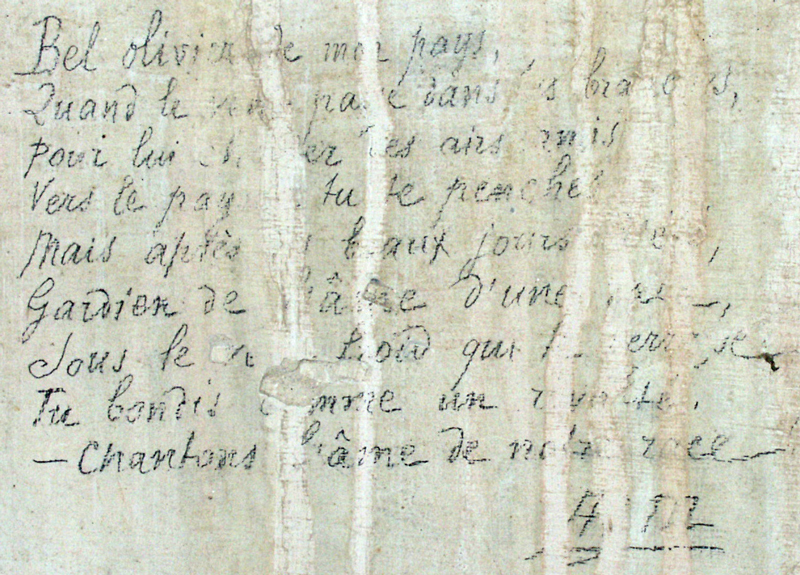 Bel olivier de mon pays,
Quand le passe dans branches,
Pour lui chanter des airs amis
Vers le pays tu te penches
Mais après beaux jours
Gardien de l'âme d'une
Sous le froid qui terrasse
Tu bondis comme un révolté.
— Chantons l'âme de notre race